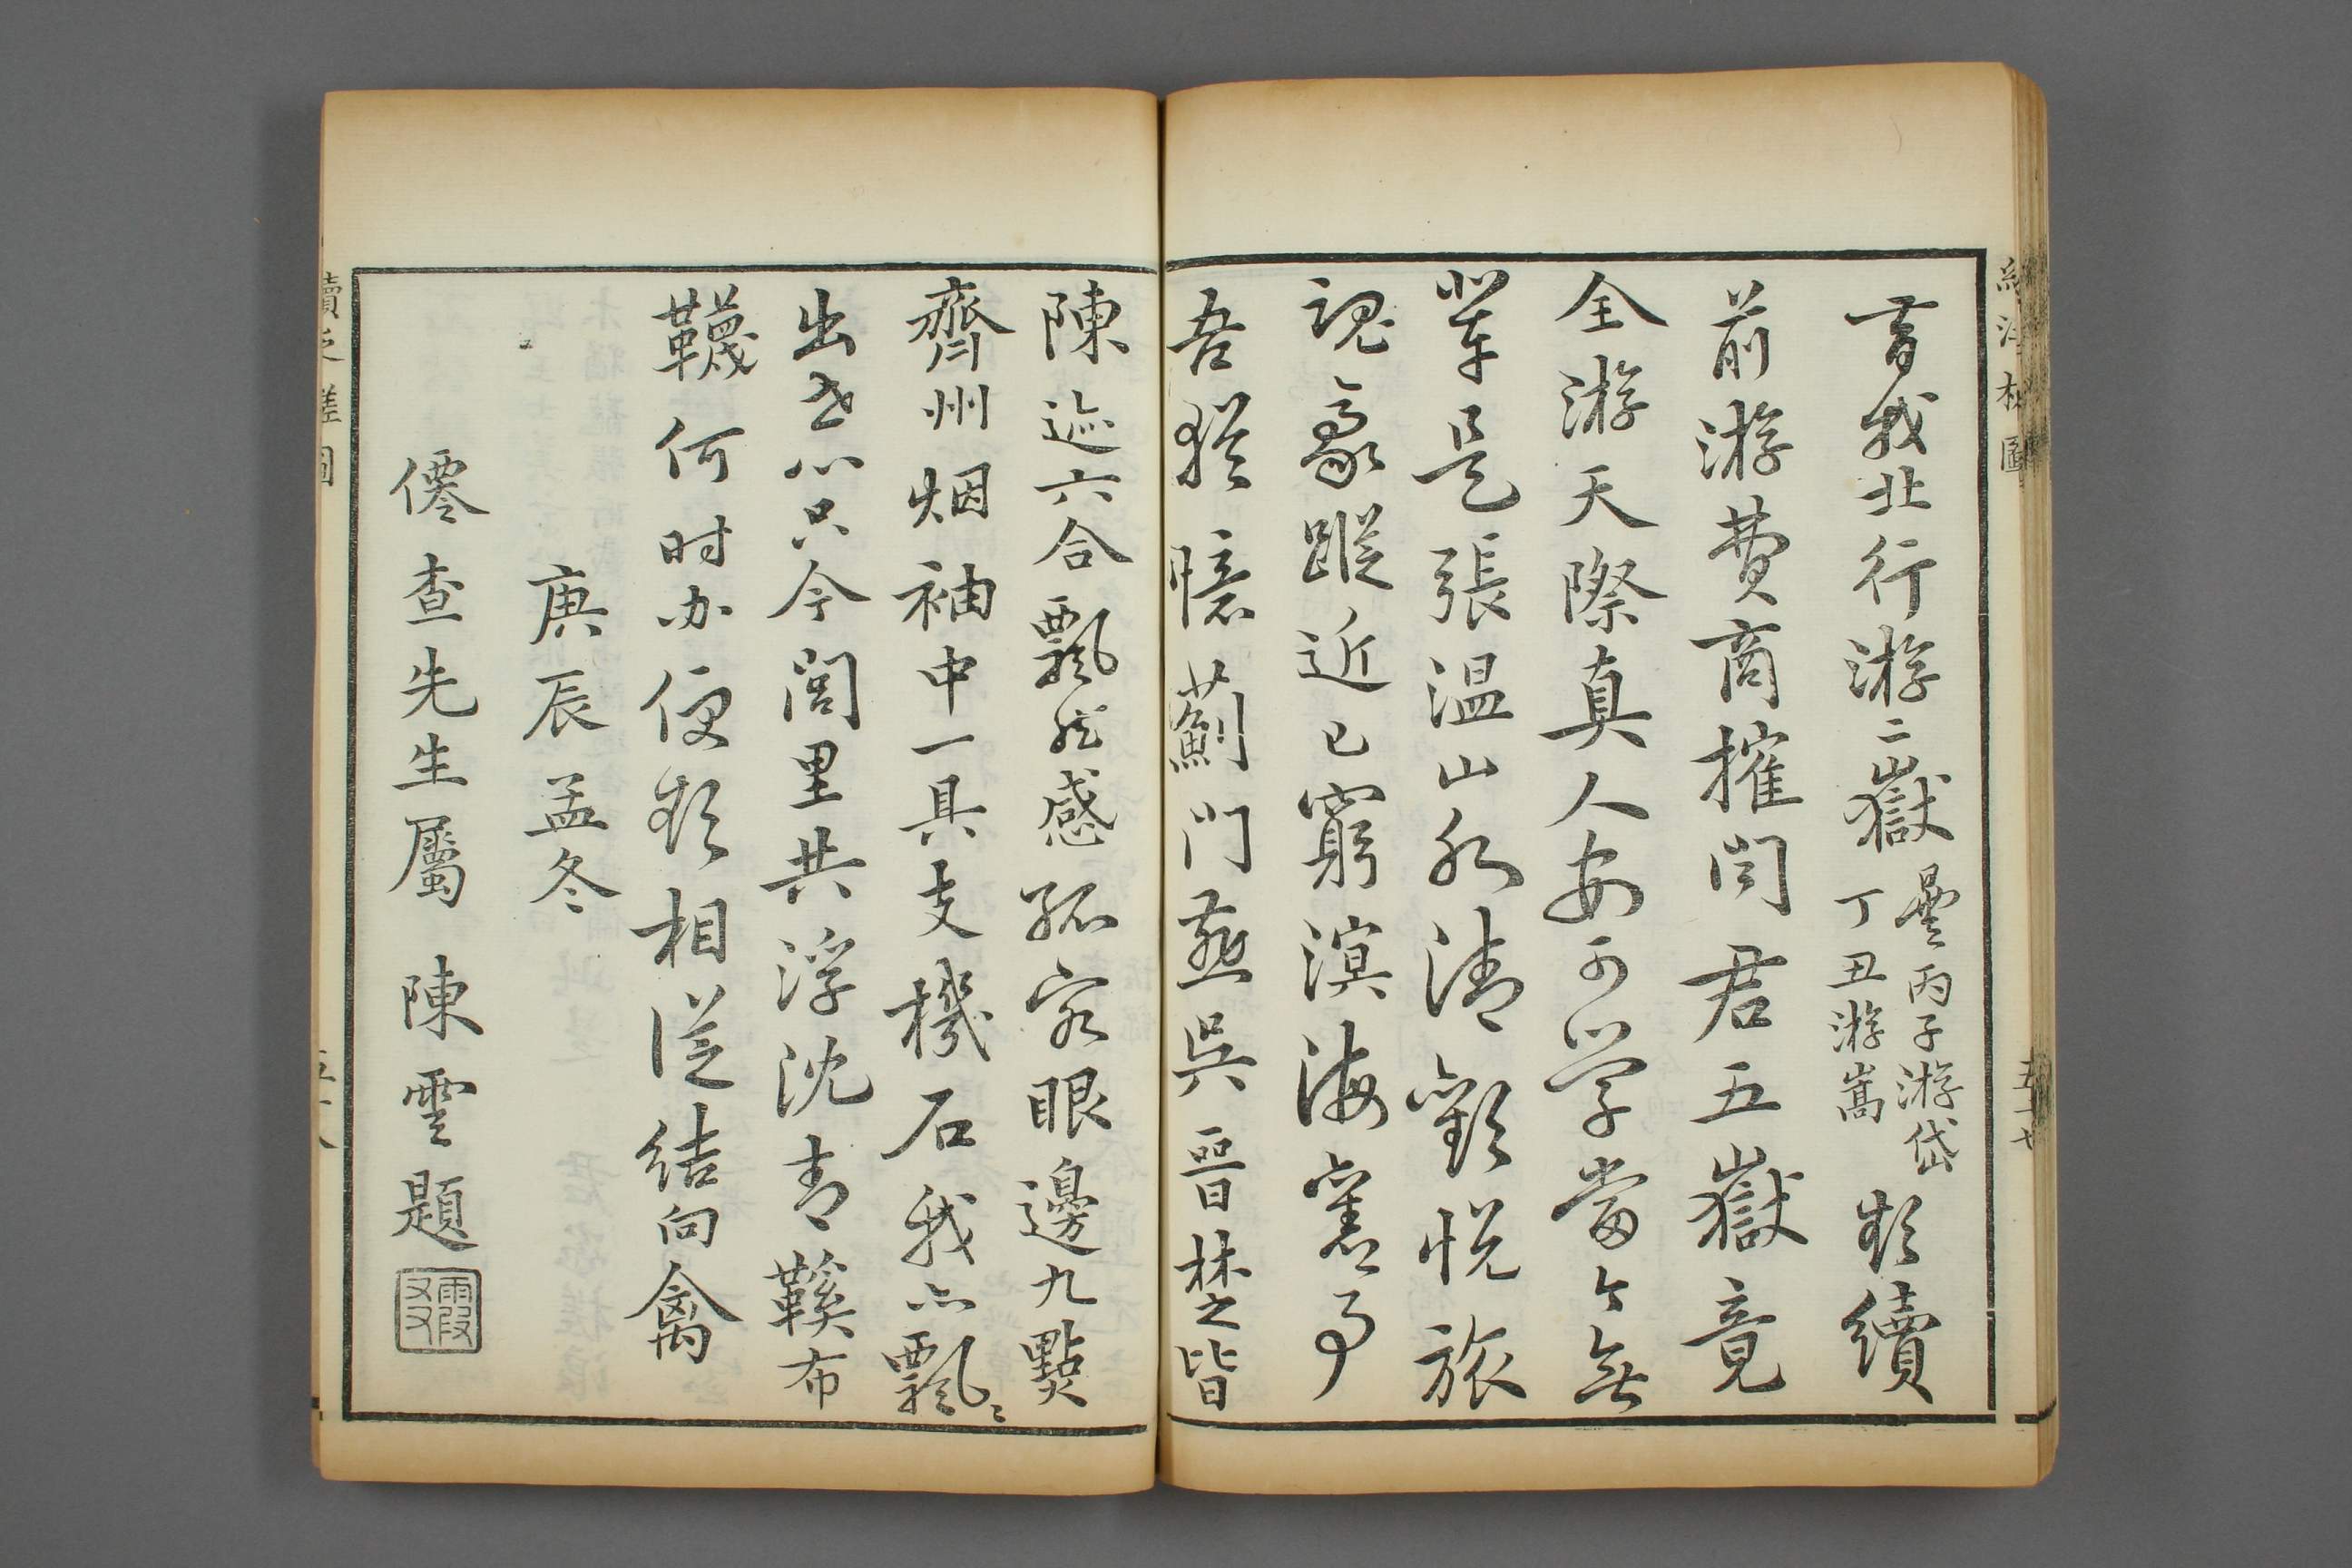 續泛槎圖 五十七
昔我北行游二嶽
雲丙子游岱
丁丑游嵩
欲續
前游費商搉闻君五嶽竟
全游天際真人安可學當今無
輩是張温山水清歡悅旅
魂豪蹤近已窮溟海舊事
吾猶憶薊门燕吳晉楚皆
陳迹六合飄然感孤客眼邊九點
齊州烟袖中一具支機石我亦飄〻
出世心只今閭里共浮沈青鞵布
韈何时办便欲相從結向禽
庚辰孟冬
僊查先生屬 陳雲題
續泛槎圖 五十八